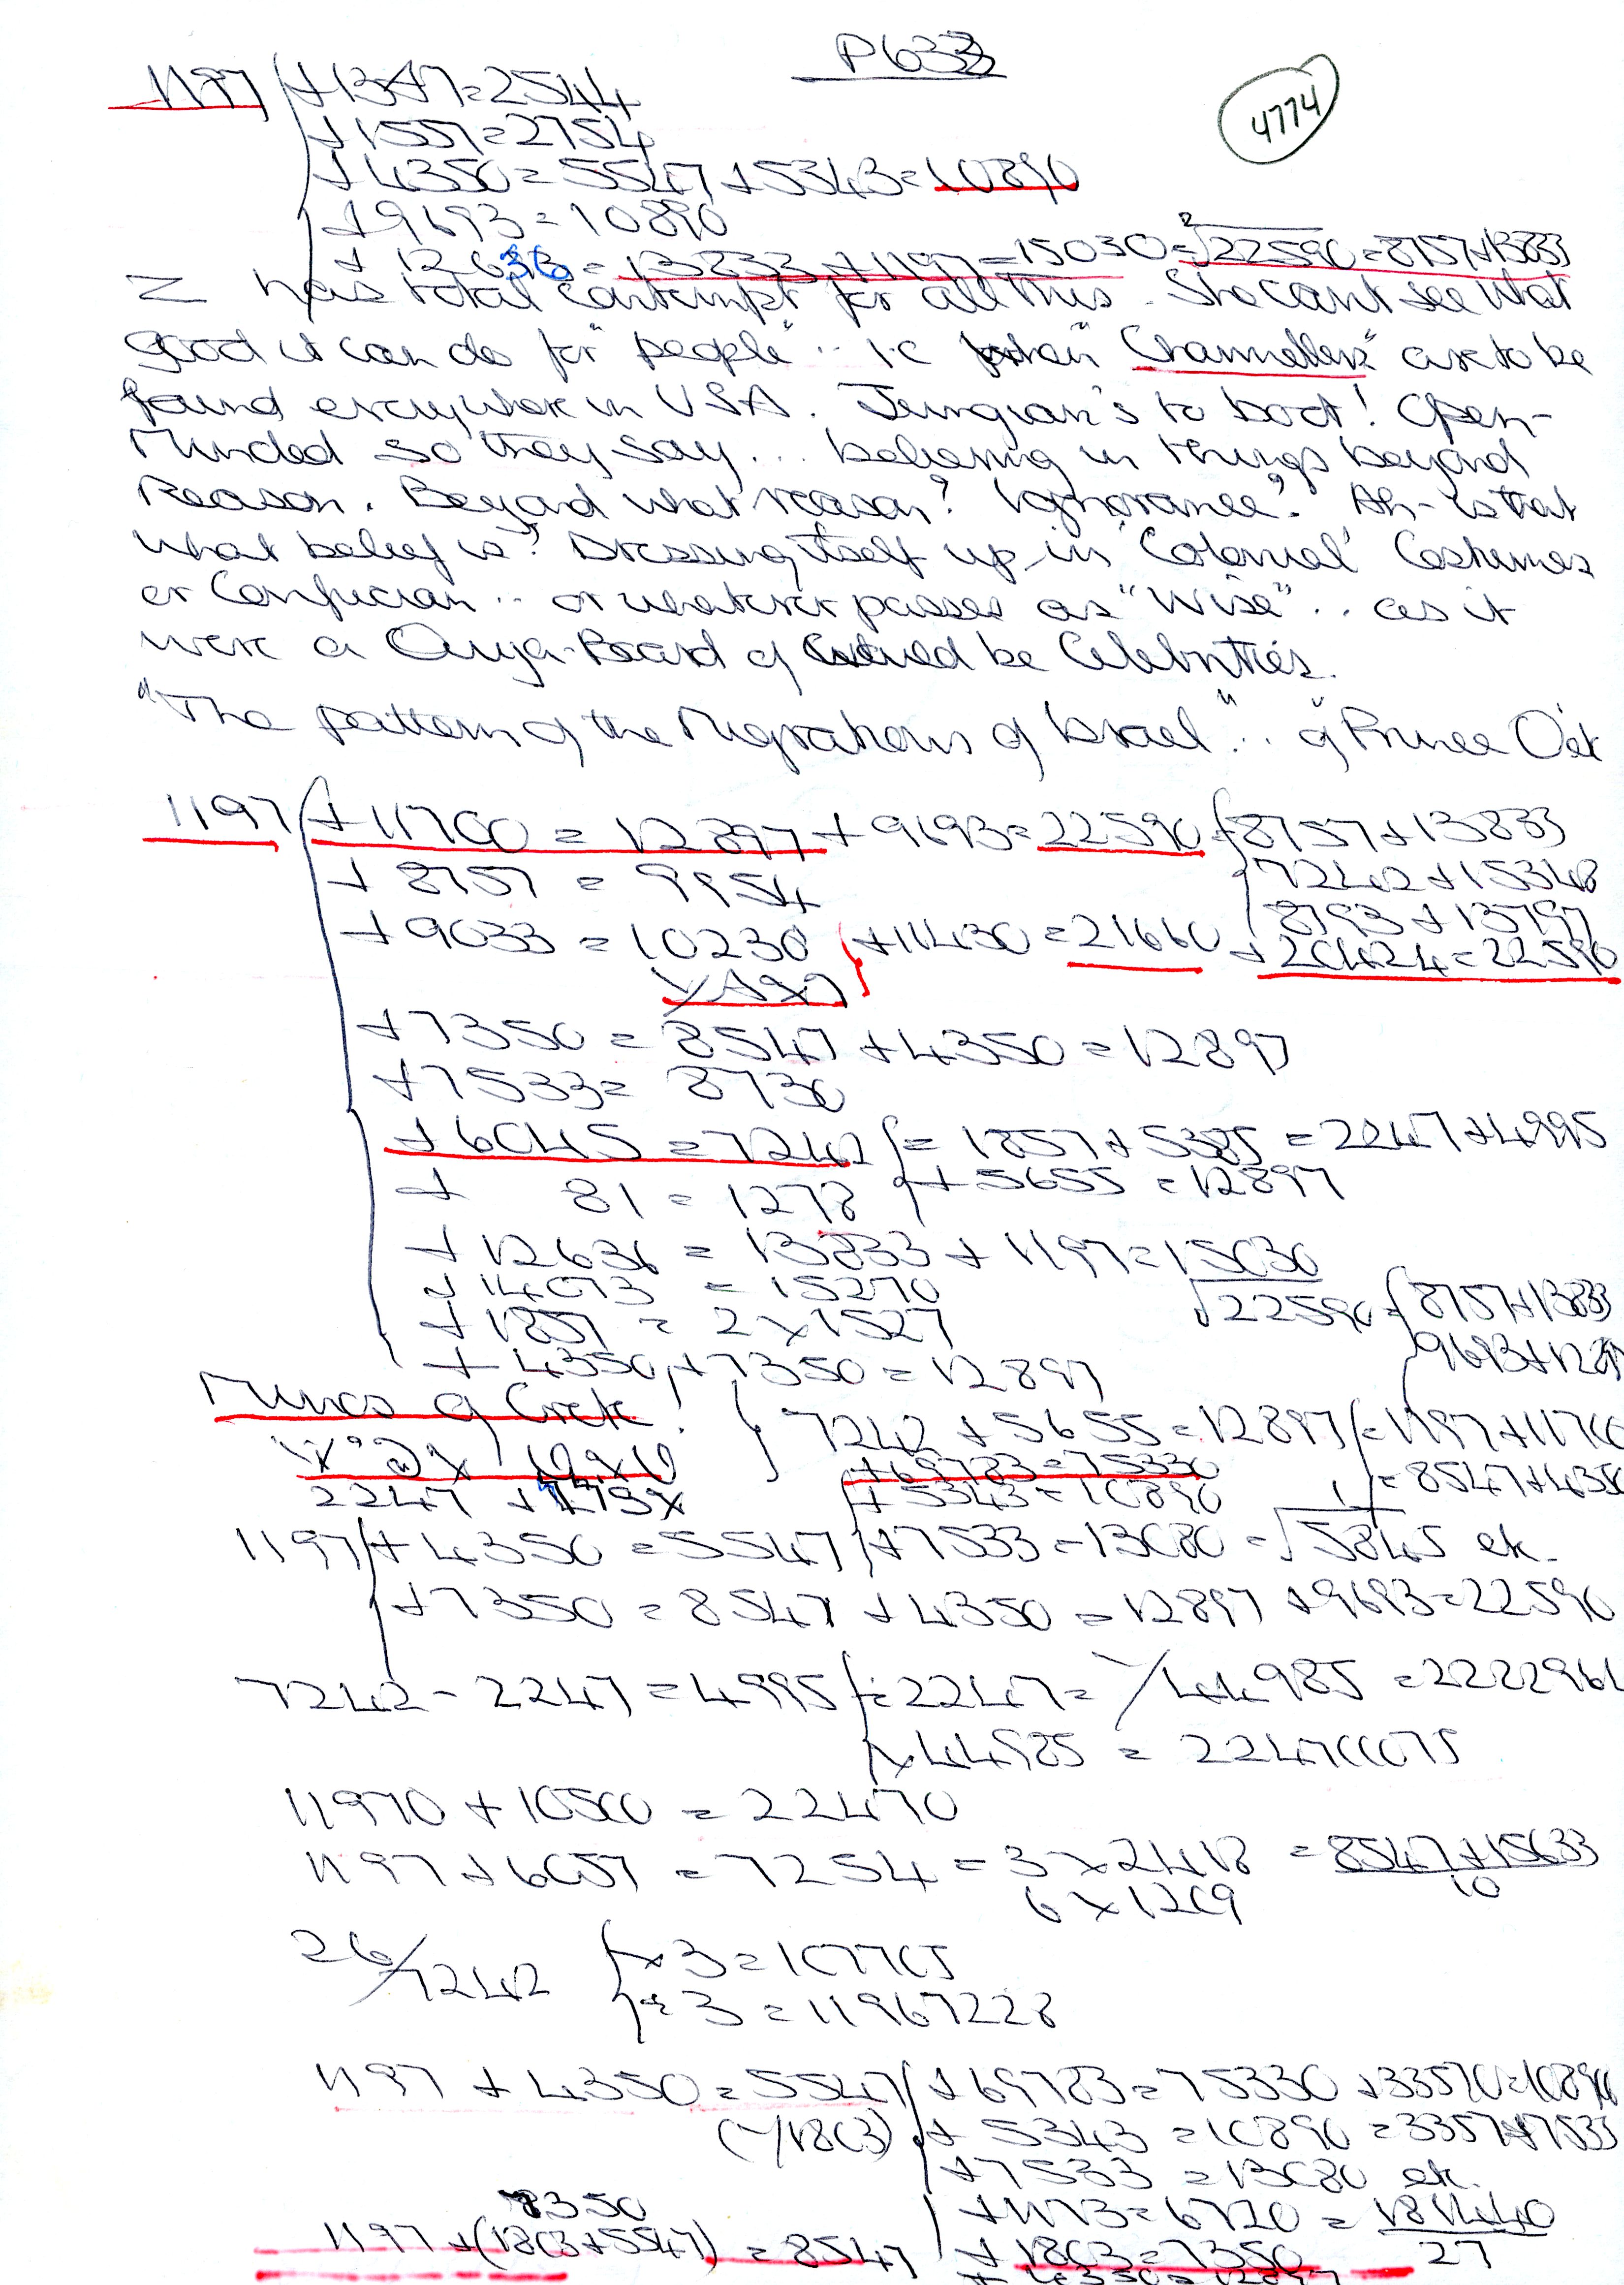 P633
4774
1197 +1347=2544
+1557=2754
+4350=5547+5343=10890
+9693=10890
+12636=13833+1197=15030 √22590=8757+13833
Z has total contempt for all this. She cant see what
good it can do for "people".. i.e "Channellers" are to be
found everywhere in USA. Jungian's to boot! Open-
Minded so they say... believing in things beyond
Reason. Beyond what reason? Ignorance? Ah- is that
what belief is? Dressing itself up in 'Colonial' Costumes
or Confucian .. or whatever passes as "Wise".. as it
were a Ouija-Board of would be Celebrities.
"The pattern of the Migrations of Israel"... of Prince
1197 +11700 = 12897 + 9693=22590 8757+13833
+ 8757 = 9954 7242+15348
+9033 = 10230 +11430=21660 8793+13797
+20424=22590
+7350 = 8547 +4350=12897
+7533= 8730
+6045 =7242 = 1857+5385=2247+4995
+ 81 = 1278 +5655 =12897
+12636 = 13833 + 1197=15030
+14073 = 15270 √22590 8757+13833
+1857 = 2x1527 9693+12897
+4350+7350=12897
Minos of Crete! 7242 +5655=12897 =1197+11700
+69783=75330 =8547+4350
2247 +5343=10890
1197 +4350 =5547 +7533=13080 =√5845 etc.
+7350=8547 +4350=12897 +9693=22590
7242-2247=4995 ÷2247= 1/44985 =2222961
x44985 = 224700075
11970 +10500 =22470
1197+6057 =7254 =3x2418 = 8547+15633
6x1209 10
26/7242 x3=107705
÷3=11967228
1197 +4350=5547 +69783=75330 +33570=10890
(-/1803) + 5343 =10890 =3357+7533
+7533 =13080 etc.
7350 +1173=6720 = 181440
1197+(1803+5547) =8547 +1803=7350 27
+4350=12897